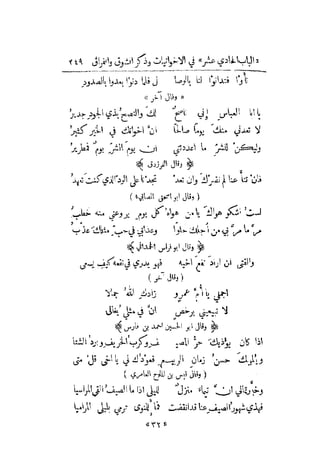 «الباب الحادي عشر» في الاخوانيات وذكر الشوق والفراق ٢٤٩
نأوا فتدانوا لنا بالرضا فلما دنوا بعدوا بالصدود
« وقال آخر »
يا ابا العباس اني ناصح لك والنصح لذي الجود جدير
لا تعدني منك يوما صالحا ان اخوانك في الخير كثير
وليكن للشر ما اعددتني ان يوم الشر يوم قمطرير
« وقال الفرزدق »
( وقال ابو اسحق الصابي )
لست اشكو هواك يا من هواه كل يوم يروعني منه خطب
مر ما مر بي من أجلك حلو وعذابي في حب مثلك عذب
« وقال ابو فراس الحمداني »
والفتى ان اراد نفع اخيه فهو يدري في نفعه كيف يسعى
( وقال آخر )
اجملي يا أم عمرو زادك الله جمالا
لا تبيعيني برخص ان في مثلي يغالى
« وقال ابو الحسين احمد بن فارس »
اذا كان يؤذيك حر المصيف وكرب الخريف وبرد الشتا
ويلهيك حسن زمان الربيع فعودك لي يا اخي قل متى
( وقال قيس بن الملوح العامري )
وخبرتماني ان تيماء منزل لليلى اذا ما الصيف القى المراسيا
فهذي شهور الصيف عنا قد انقضت فما للنوى ترمي بليلى المراميا
«٣٢»